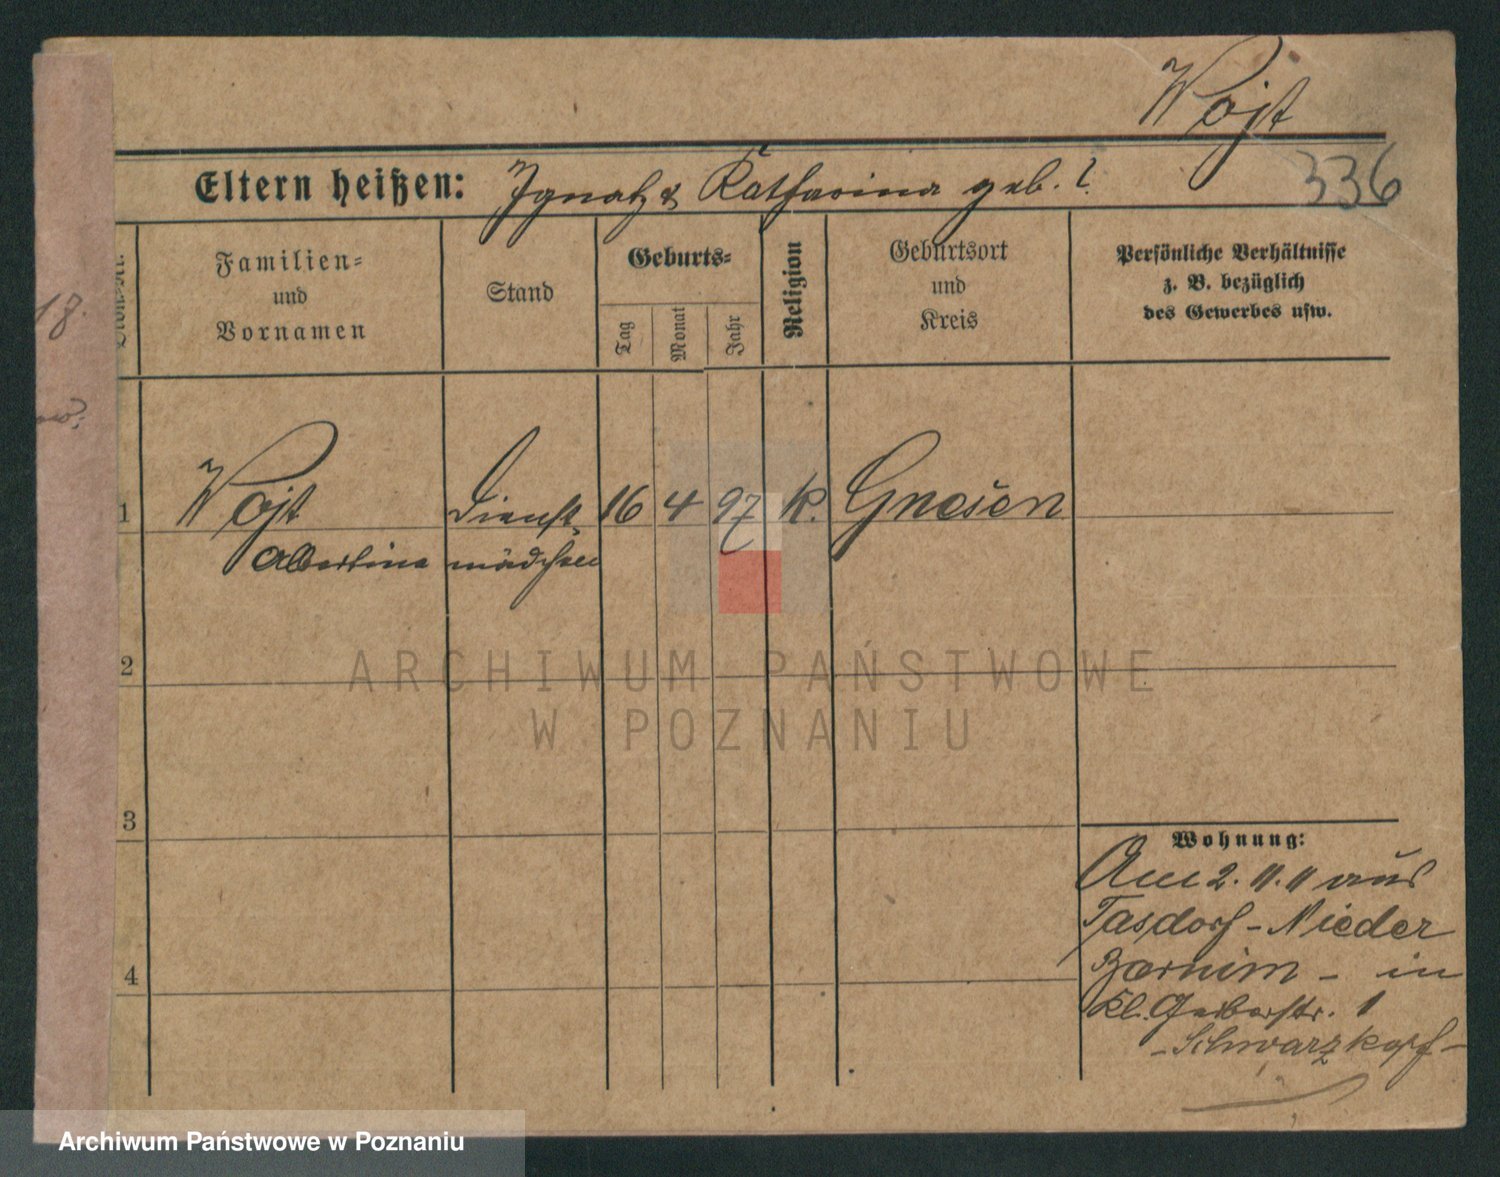 Wojt
336
Eltern heißen: Ignatz & Katharina geb. ?
Familien-
und
Vornamen
Stand
Geburts-
Tag
Monat
Jahr
Religion
Geburtsort
und
Kreis
Persönliche Verhältnisse
z. B. bezüglich
des Gewerbes usw.
18
1 Wojt Dienst- 16 4 97 k. Gnesen
Albertine mädchen
2
ARCHIWUM PAŃSTWOWE
W POZNANIU
3
Wohnung:
Am 2. 11. 11 aus
Tasdorf - Nieder
Barnim - in
Kl. Gerberstr. 1
- Schwarzkopf -
4
Archiwum Państwowe w Poznaniu